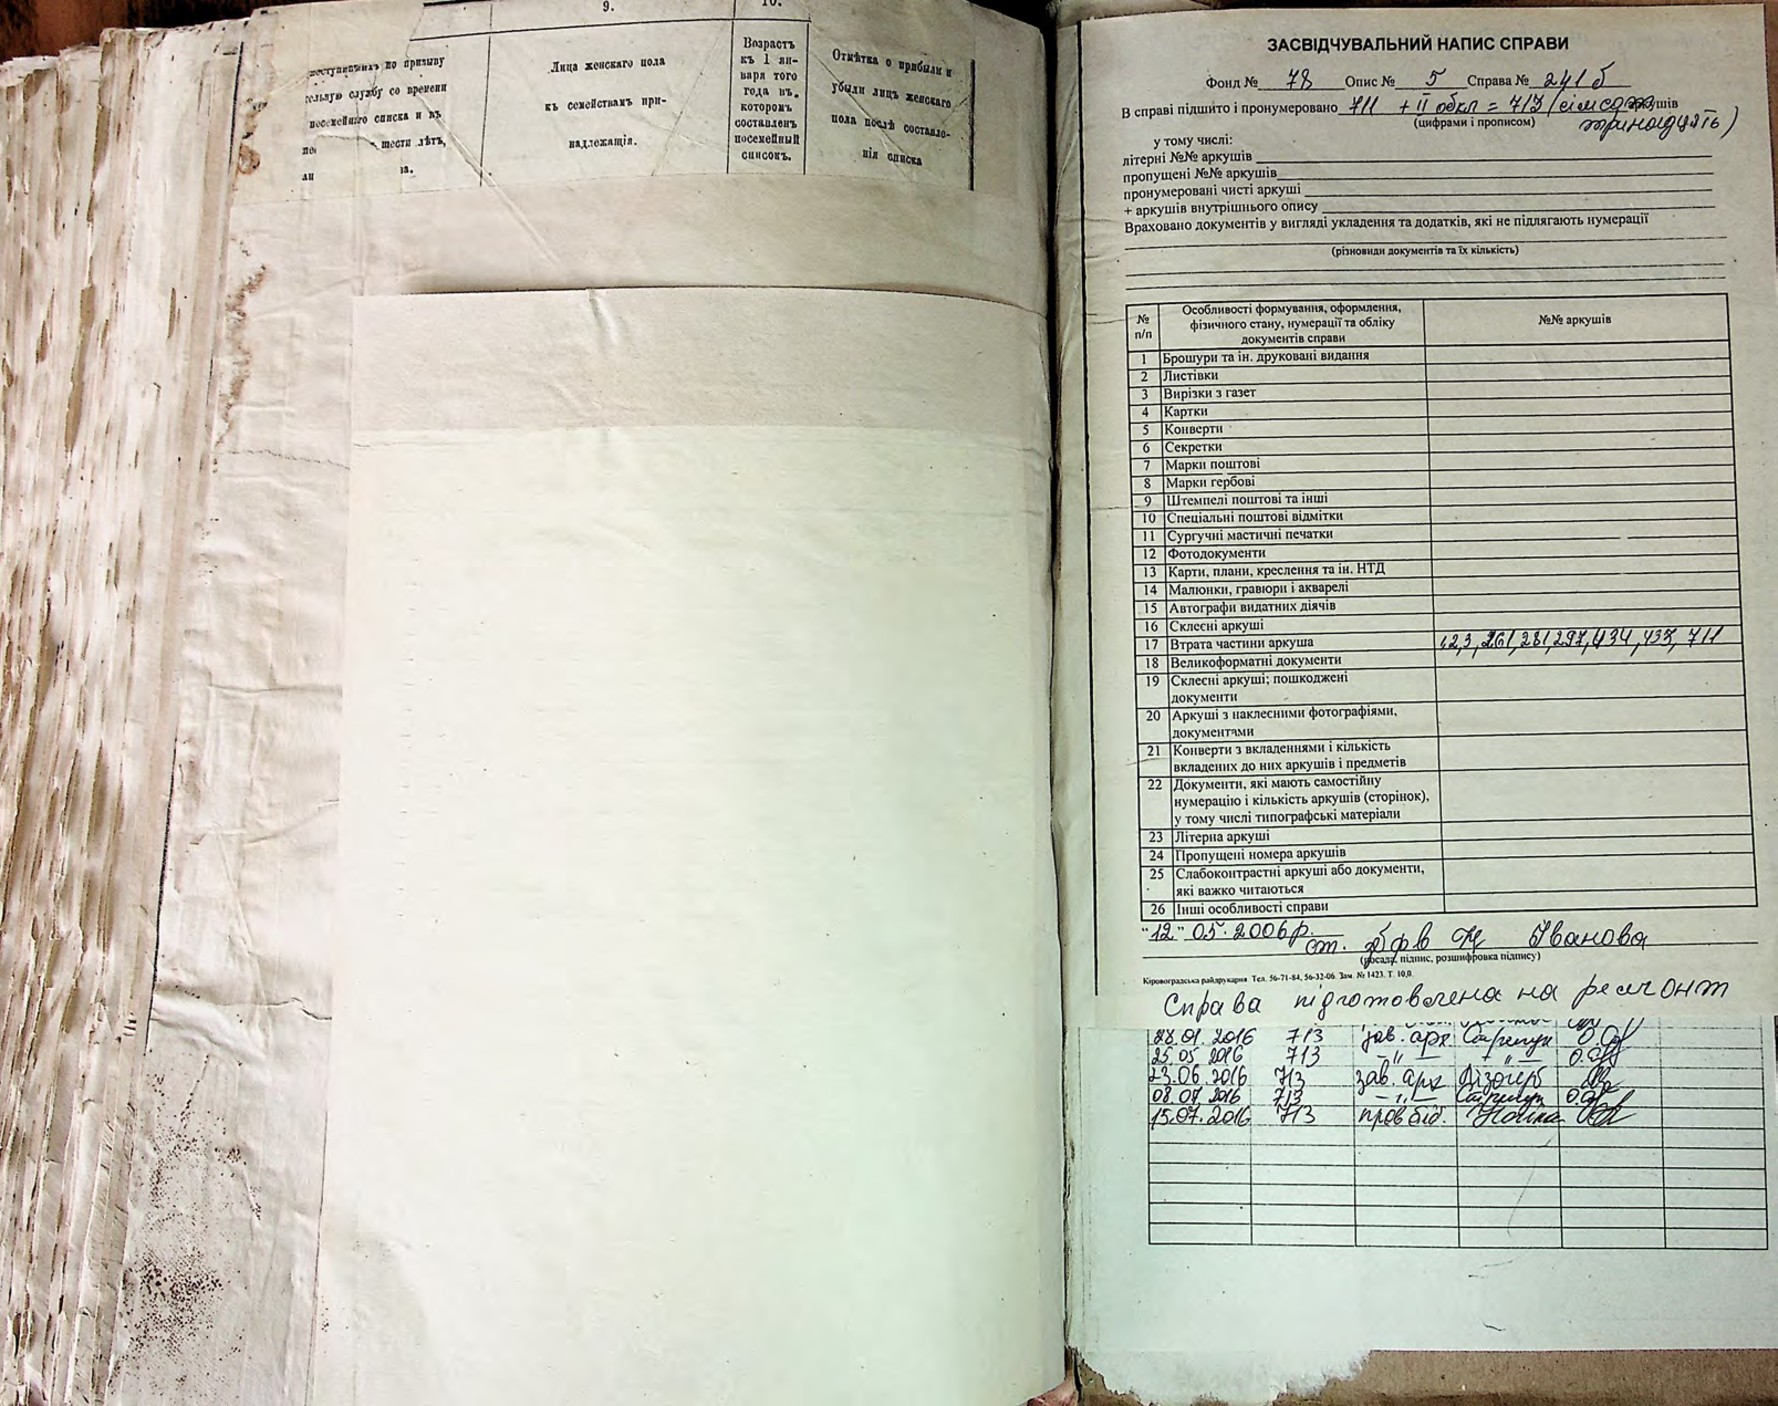 9.
10.
поступившихъ по призыву
тельную службу со времени
посемейнаго списка и въ
шести лѣтъ,
Лица женскаго пола
къ семействамъ при-
надлежащія.
Возрастъ
къ 1 ян-
варя того
года въ.
которомъ
составленъ
посемейный
списокъ.
Отмѣтка о прибыли и
убыли лицъ женскаго
пола послѣ составле-
нія списка
ЗАСВІДЧУВАЛЬНИЙ НАПИС СПРАВИ
Фонд № 78 Опис № 5 Справа № 241б
В справі підшито і пронумеровано 711 + II обкл = 713 (сімсот аркушів
(цифрами і прописом) тринадцять)
у тому числі:
літерні №№ аркушів
пропущені №№ аркушів
пронумеровані чисті аркуші
+ аркушів внутрішнього опису
Враховано документів у вигляді укладення та додатків, які не підлягають нумерації
(різновиди документів та їх кількість)
№ п/п
Особливості формування, оформлення,
фізичного стану, нумерації та обліку
документів справи
№№ аркушів
1 Брошури та ін. друковані видання
2 Листівки
3 Вирізки з газет
4 Картки
5 Конверти
6 Секретки
7 Марки поштові
8 Марки гербові
9 Штемпелі поштові та інші
10 Спеціальні поштові відмітки
11 Сургучні мастичні печатки
12 Фотодокументи
13 Карти, плани, креслення та ін. НТД
14 Малюнки, гравюри і акварелі
15 Автографи видатних діячів
16 Склеєні аркуші
17 Втрата частини аркуша 1,2,3, 261, 281, 297, 434, 437, 711
18 Великоформатні документи
19 Склеєні аркуші; пошкоджені
документи
20 Аркуші з наклеєними фотографіями,
документами
21 Конверти з вкладеннями і кількість
вкладених до них аркушів і предметів
22 Документи, які мають самостійну
нумерацію і кількість аркушів (сторінок),
у тому числі типографські матеріали
23 Літерна аркуші
24 Пропущені номера аркушів
25 Слабоконтрастні аркуші або документи,
які важко читаються
26 Інші особливості справи
"12" 05. 2006р.
ст. Іванова
(посада, підпис, розшифровка підпису)
Кіровоградська райдрукарня Тел. 56-71-84, 56-32-06 Зам. № 1423. Т. 10,0.
Справа підготовлена на ремонт
28.01.2016 713 зав. арх
25.05 2016 713 — " —
23.06.2016 713 зав. арх
08.07.2016 713 — " —
15.07.2016 713 пров біб.